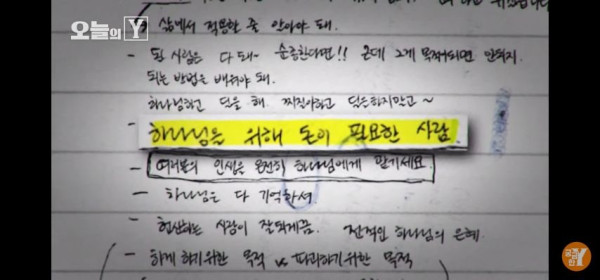 오늘의 Y
삶에서 적용할 줄 알아야 돼.
- 될 사람은 다 돼~ 순종한다면!! 근데 그게 목적되면 안되지.
되는 방법은 배워야 돼.
하나님하고 딜을 해. 찌질이하고 딜하지말고~
- 하나님을 위해 돈이 필요한 사람.
- 여러분의 인생을 온전히 하나님에게 맡기세요
- 하나님은 다 기억하셔
- 헌신하는 사람이 잘되게끔. 전적인 하나님의 은혜.
- 하게 하기 위한 목적 vs 따라하기 위한 목적
궁금한 Y